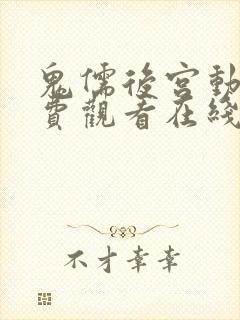 鬼儒後宮動
費觀看在綫
不才幸幸